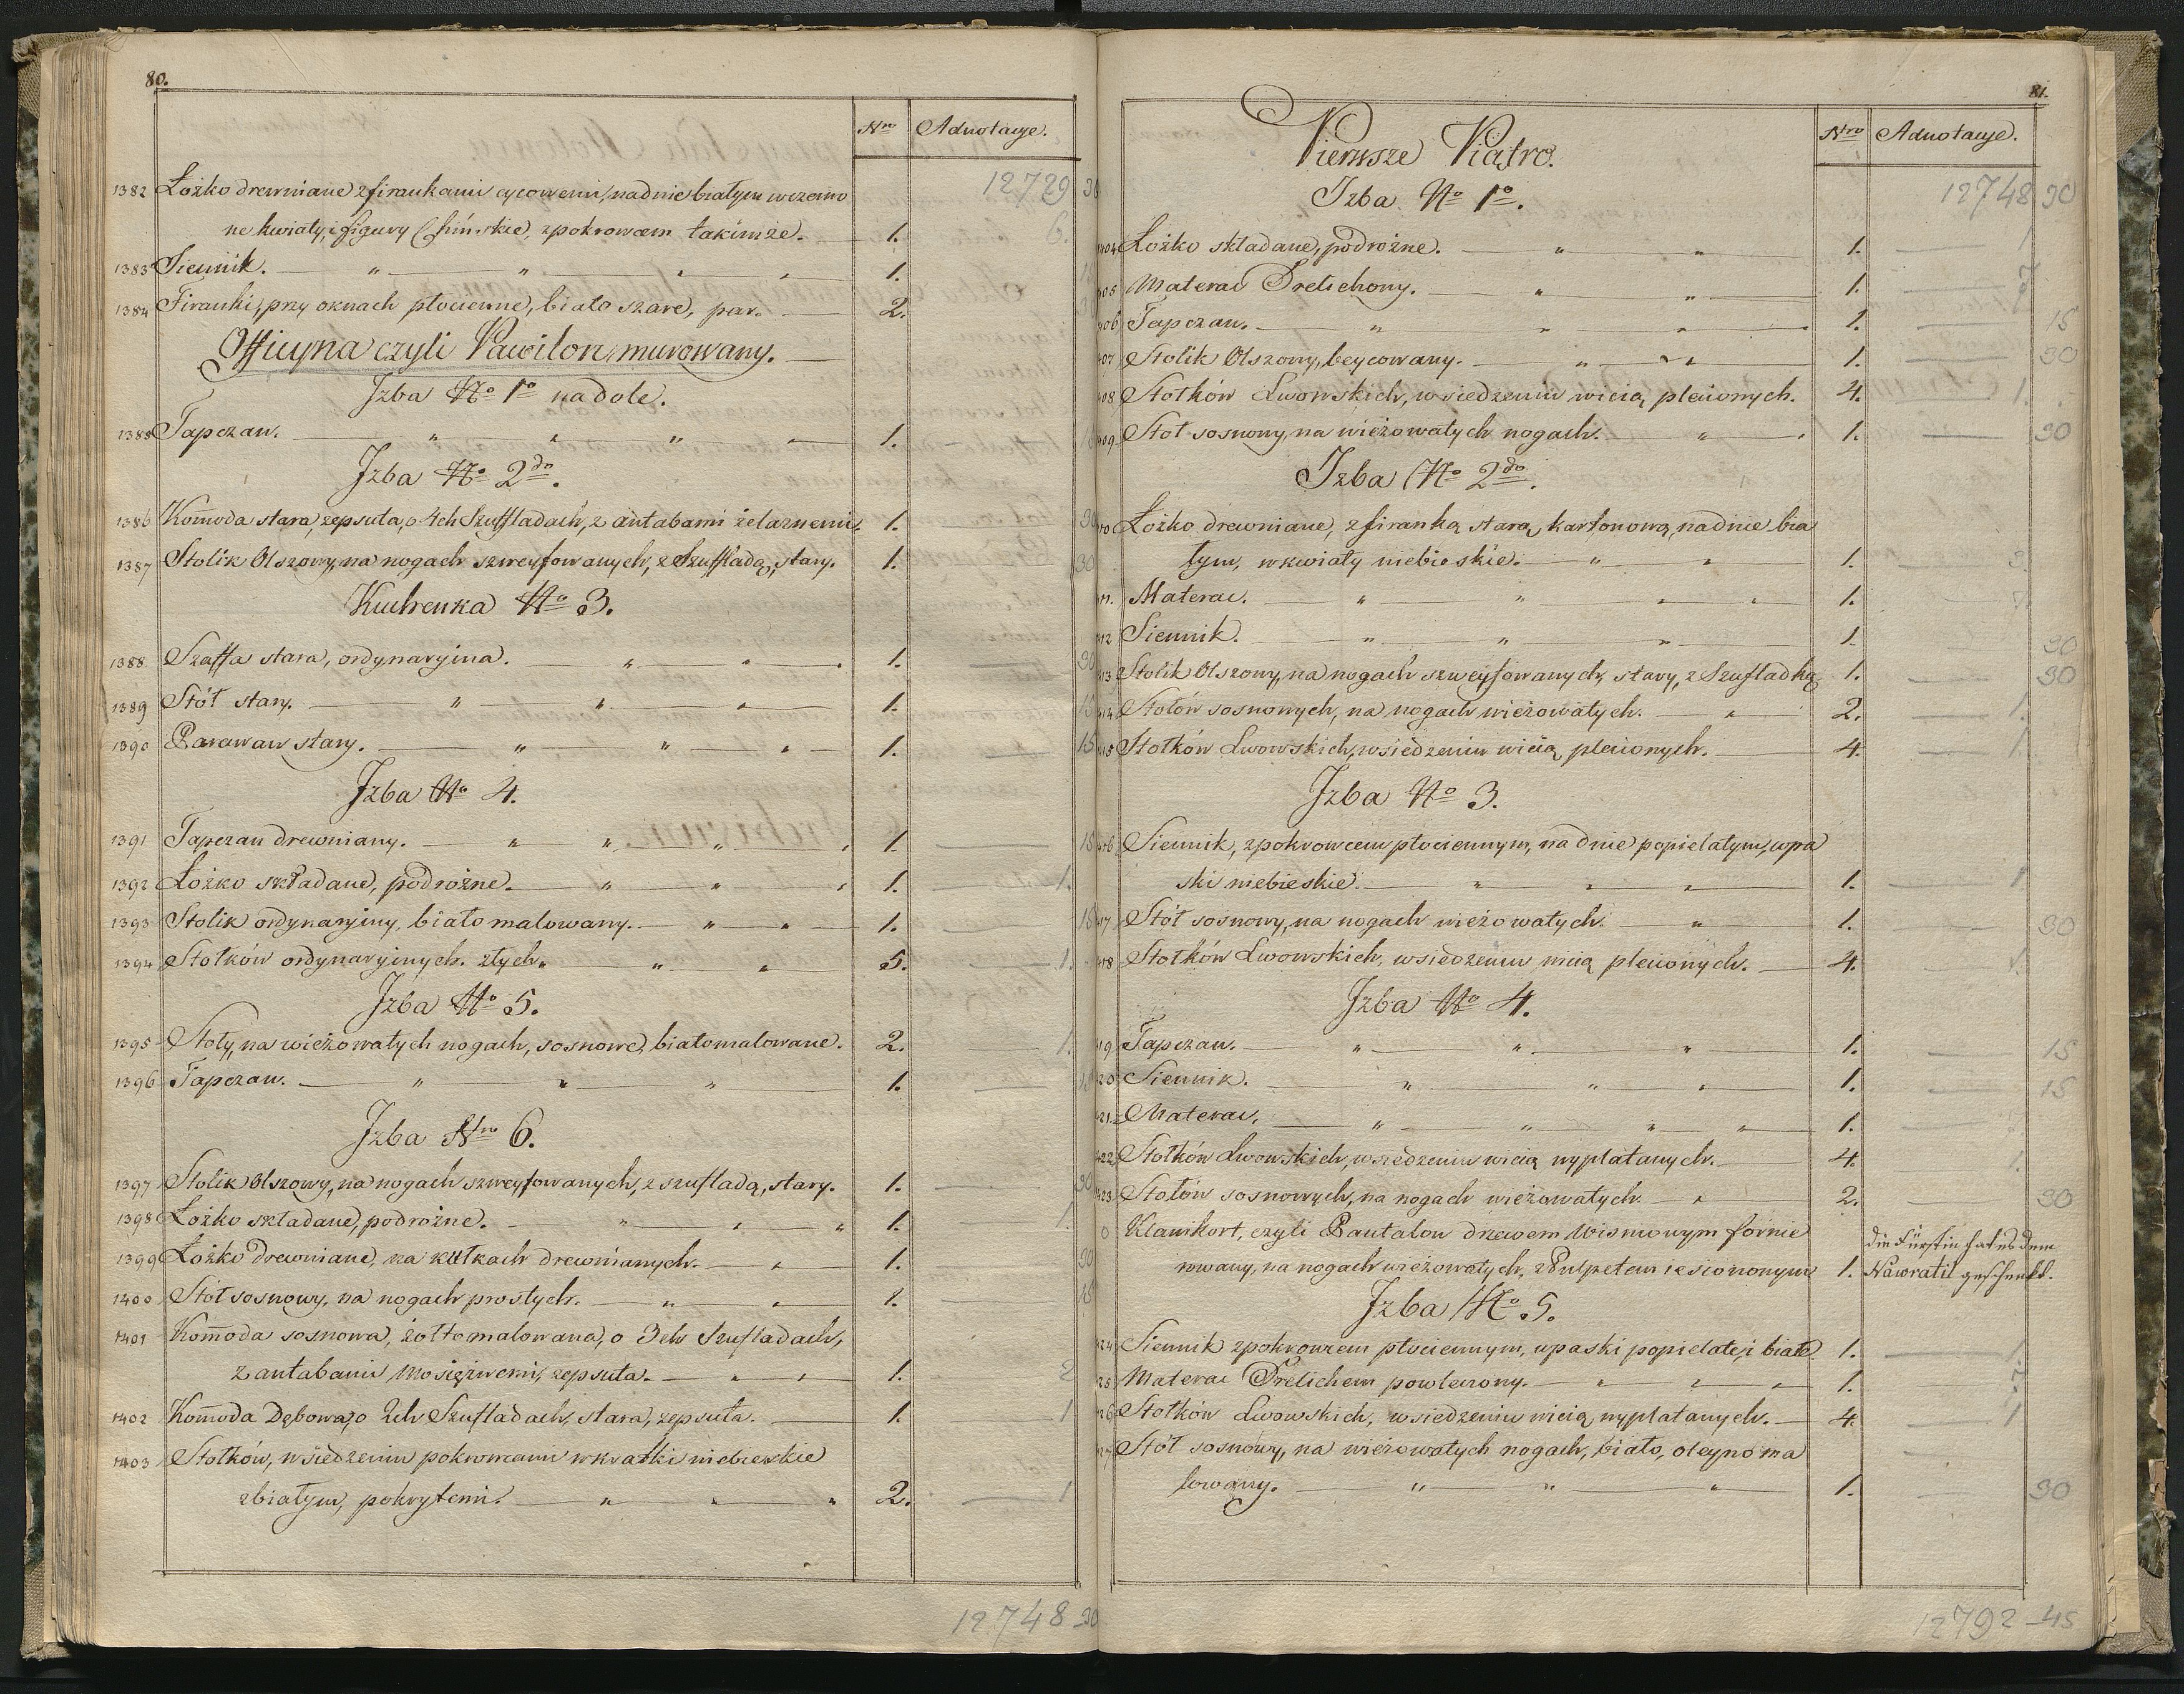 80.
Nro Adnotacye.
12729 30
1382 Łożko drewniane z firankami cycowemi, na dnie białym w czerwo
ne kwiaty, i figury Chińskie, z pokrowcem takimże. 1. 6.
1383 Siennik. " " " " 1.
1384 Firanki, przy oknach płocienne, biało szare, par. 2.
Officyna czyli Pawilon murowany.
Izba No 1o na dole.
1385 Tapczan. " " " " 1.
Izba No 2do.
1386 Kom̄oda stara, zepsuta, o 4ch Szuffladach, z antabami żelaznemi. 1. 30
1387 Stolik Olszowy, na nogach szweyfowanych, z Szuffladą, stary. 1. 30
Kuchenka No 3.
1388 Szaffa stara, ordynaryina. " " 1. 30
1389 Stół stary. " " " 1. 15
1390 Parawan stary. " " " 1. 15
Izba No 4.
1391 Tapczan drewniany. " " " " 1. 15
1392 Łożko składane, podrożne. " " " 1. 1.
1393 Stolik ordynaryiny, biało malowany. " " 1. 15
1394 Stołków ordynaryinych, złych. " " 5. 1.
Izba No 5.
1395 Stoły, na wieżowatych nogach, sosnowe, biało malowane. 2. 1.
1396 Tapczan. " " " 1.
Izba Nro 6.
1397 Stolik Olszowy, na nogach szweyfowanych, z szufladą, stary. 1. 30
1398 Łożko składane, podrożne. " " " 1. 1.
1399 Łożko drewniane, na kułkach drewnianych. " 1. 30
1400 Stół sosnowy, na nogach prostych. " " 1. 15
1401 Kom̄oda sosnowa, żołto malowana, o 3ch Szufladach,
z antabami mosiężnemi, zepsuta. " " 1. 2
1402 Kom̄oda Dębowa, o 2ch Szufladach, stara, zepsuta. 1. 1
1403 Stołków, w siedzeniu pokrowcami w kratki niebieskie
z białym, pokrytemi. " " " 2. 1
12748 _30
81.
Nro Adnotacye.
Pierwsze Piatro.
Izba No 1o.
12748 30
404 Łożko składane, podrożne. " " 1. 1
405 Materac Drelichony. " " 1. 7
406 Tapczan. " " " 1. 15
407 Stolik Olszowy, beycowany. " " 1. 30
408 Stołków Lwowskich, w siedzeniu wicią plecionych. 4. 1.
409 Stół sosnowy, na wieżowatych nogach. " 1. 30
Izba No 2do.
410 Łożko drewniane, z firanką starą kartonową, na dnie bia
łym, w kwiaty niebieskie. " " 1. 3
411. Materac. " " " " 1. 7
412 Siennik. " " " 1 30
413 Stolik Olszowy, na nogach szweyfowanych, stary, z Szufladką 1. 30
414 Stołów sosnowych, na nogach wieżowatych. " 2. 1.
415 Stołków Lwowskich, w siedzeniu wicią plecionych. 4. 1
Izba No 3.
416 Siennik, z pokrowcem płociennym, na dnie popielatym, w pa
ski niebieskie. " " " 1. 1
417 Stół sosnowy, na nogach wieżowatych. " 1. 30
418 Stołków Lwowskich, w siedzeniu wicią plecionych. 4. 1.
Izba No 4.
419 Tapczan. " " " 1. 15
420 Siennik. " " " 1. 15
421. Materac. " " " " 1.
422 Stołków Lwowskich, w siedzeniu wicią wyplatanych. 4. 1.
423 Stołów sosnowych, na nogach wieżowatych. " 2. 30
0 Klawikort, czyli Pantalon drzewem Wisniowym fornie
rowany, na nogach wieżowatych, z Pulpetem iesionowym 1. die Fürstin hat es dem
Nawratil geschenkt.
Izba No 5.
424 Siennik z pokrowcem płociennym, w paski popielate, i białe 1. 1
425 Materac Drelichem powleczony. " " " 1. 7
426 Stołków Lwowskich, w siedzeniu wicią wyplatanych. 4. 1
427 Stół sosnowy, na wieżowatych nogach, biało, oleyno ma
lowany. " " " 1. 30
12792 _45